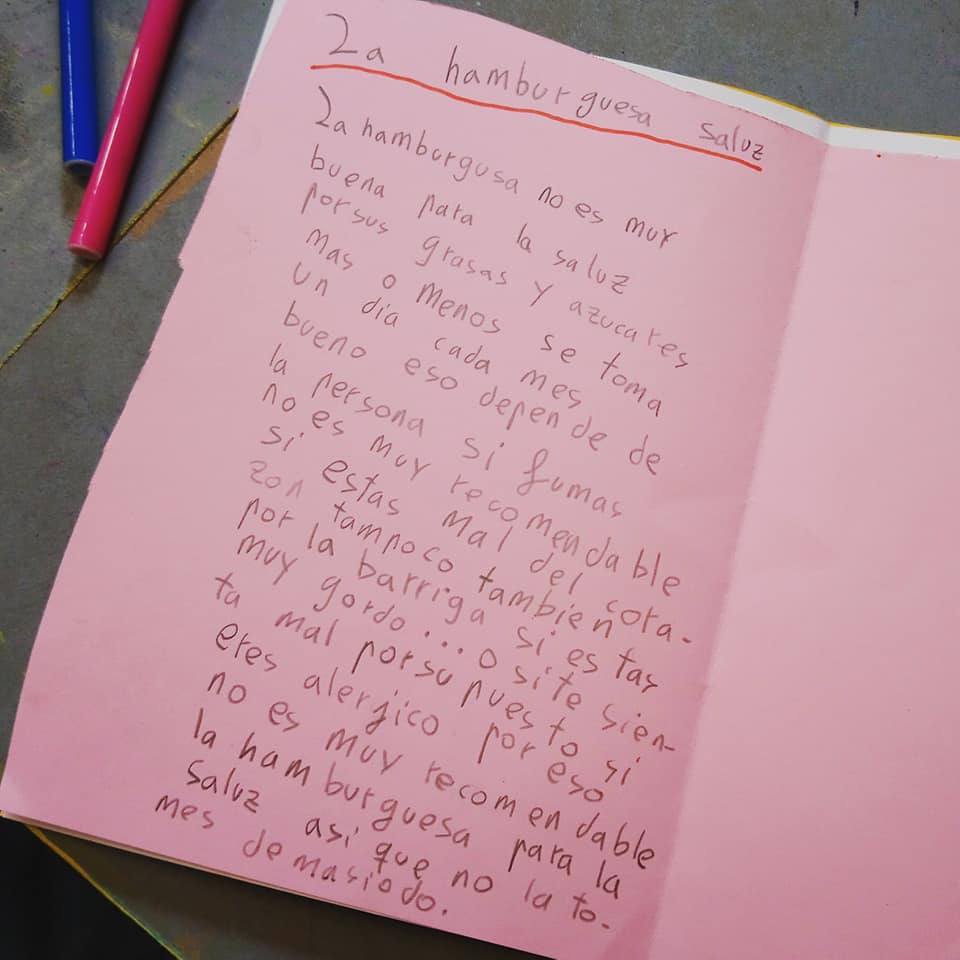 La hamburguesa saluz
La hamburgusa no es muy
buena para la saluz
por sus grasas y azucares
mas o menos se toma
un dia cada mes
bueno eso depende de
la persona si fumas
no es muy recomendable
si estas mal del cora-
zon tampoco tambien
por la barriga si es tas
muy gordo... o si te sien-
ta mal por su puesto si
eres alerjico por eso
no es muy recomendable
la hamburguesa para la
saluz asi que no la to-
mes demasiodo.